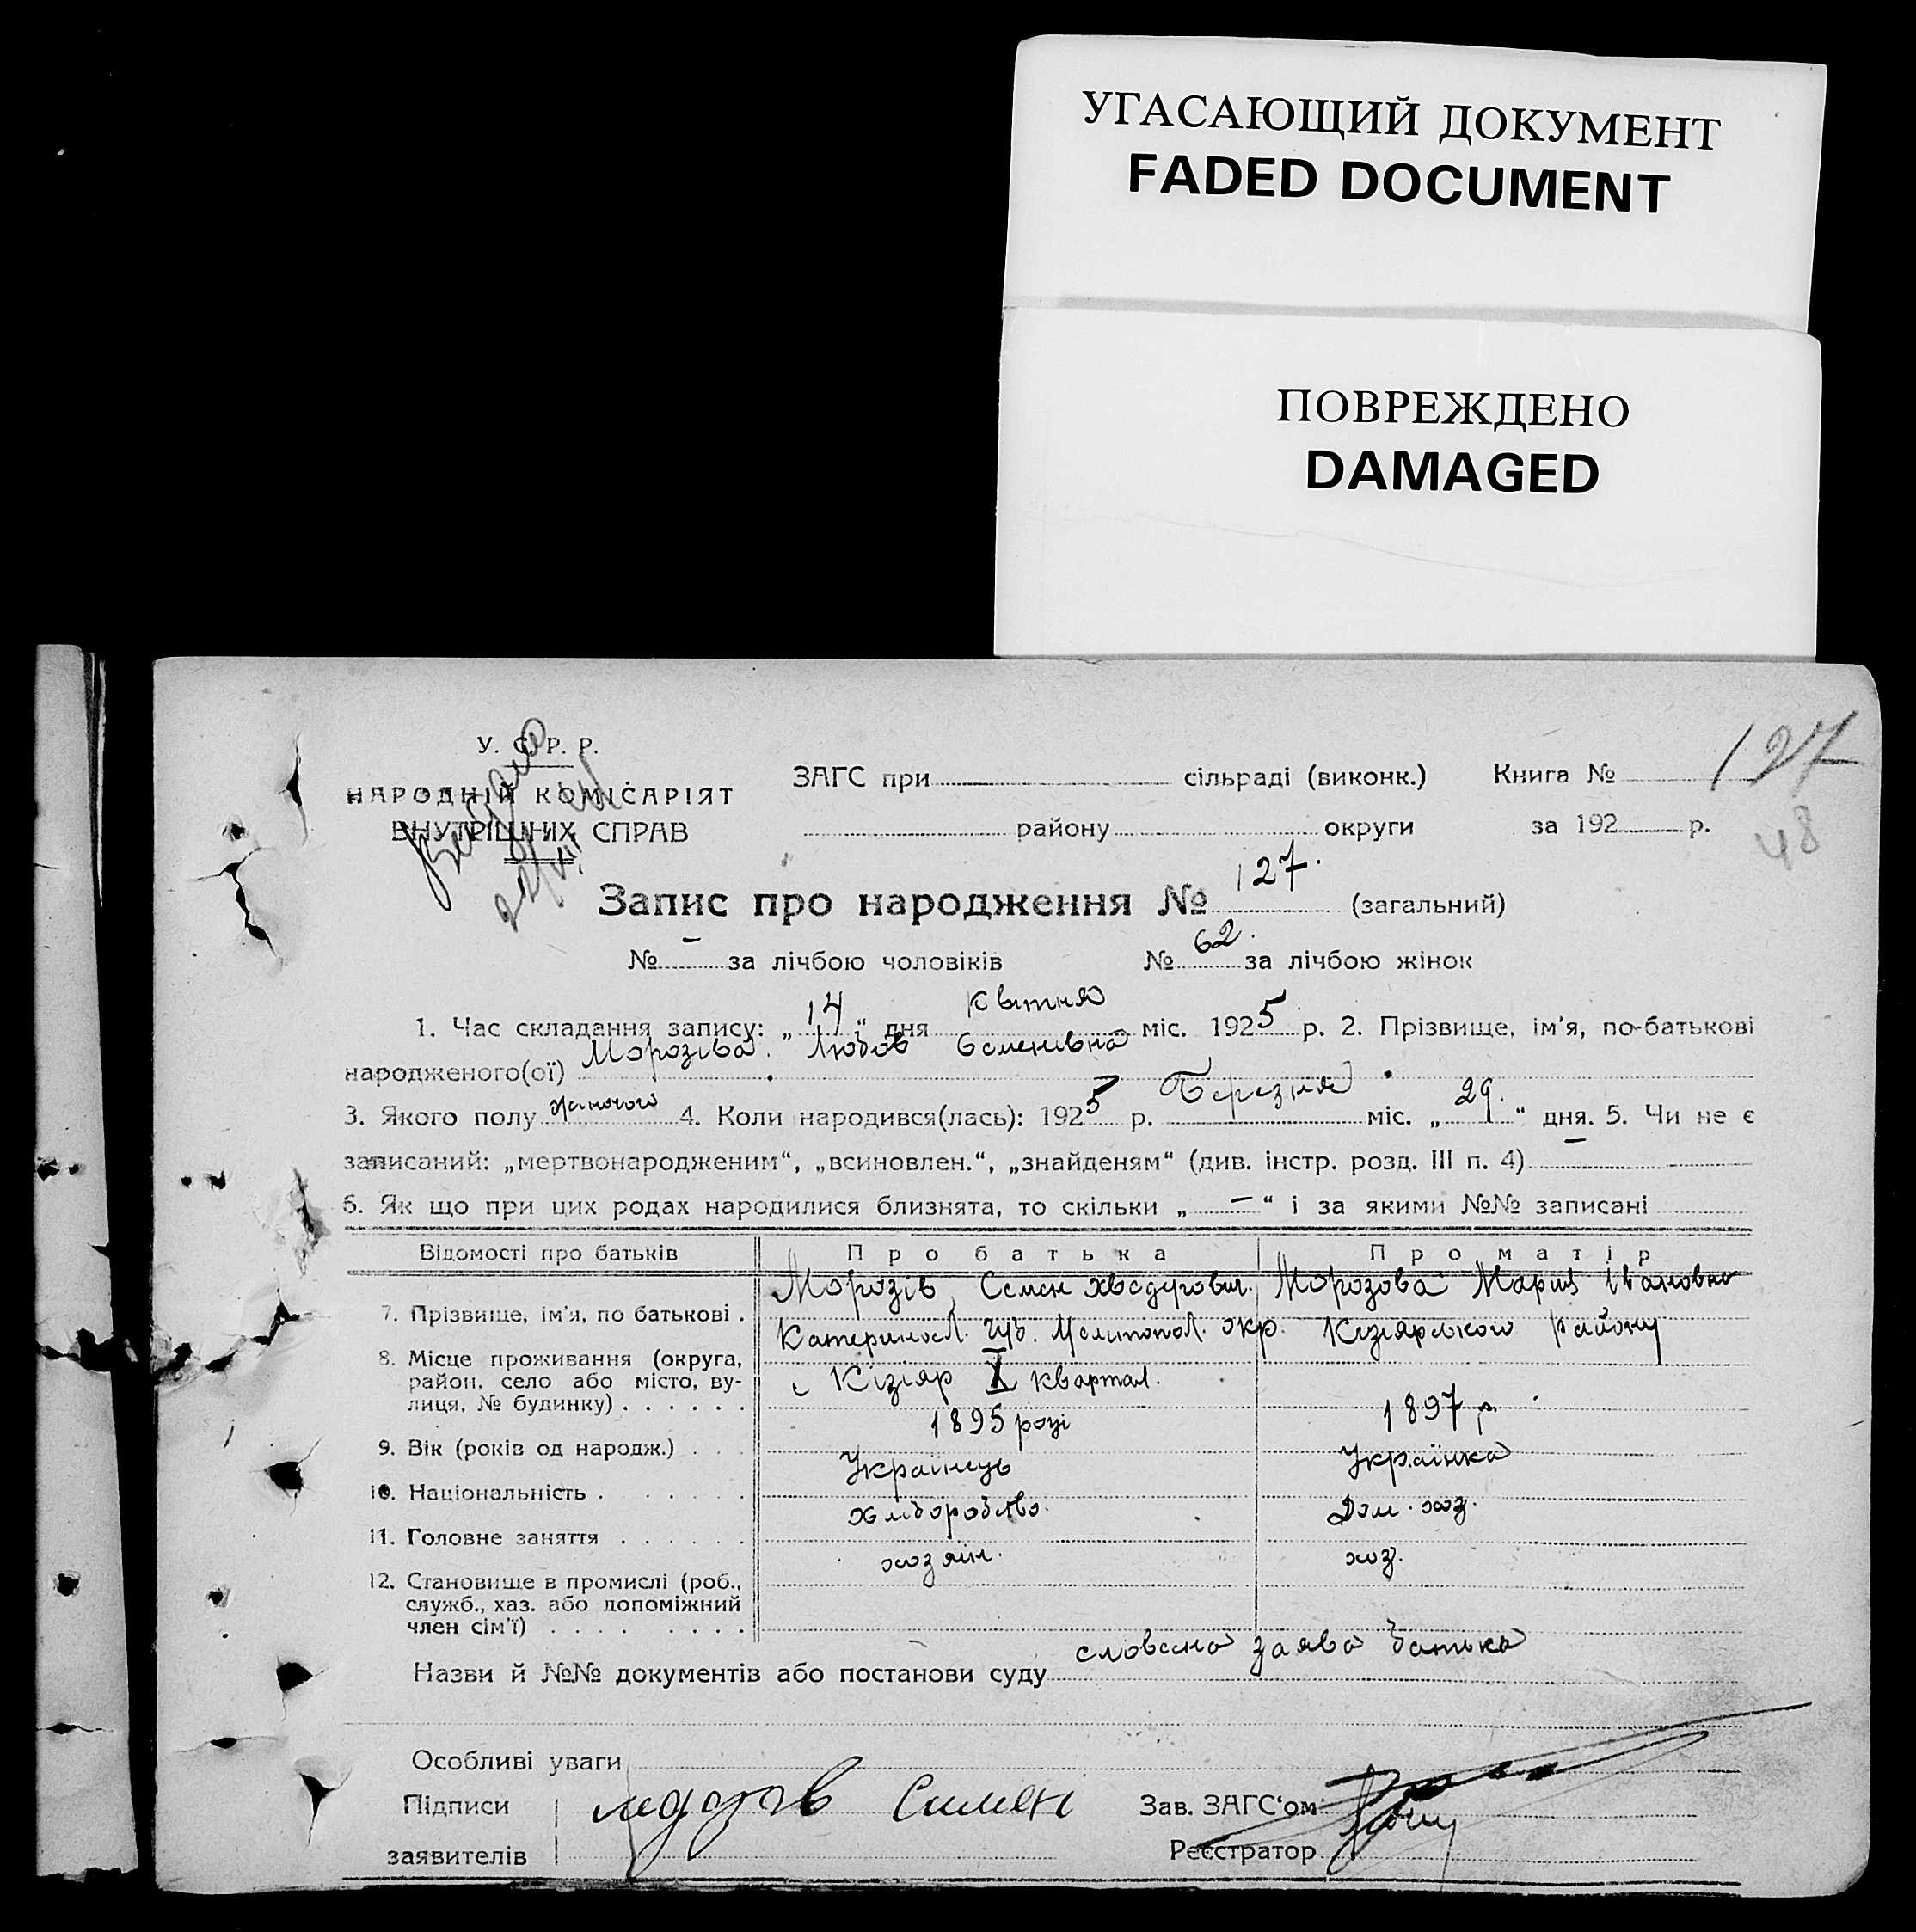 УГАСАЮЩИЙ ДОКУМЕНТ
FADED DOCUMENT
ПОВРЕЖДЕНО
DAMAGED
127
48
У. С. Р. Р.
НАРОДНІЙ КОМІСАРІЯТ
ВНУТРІШНІХ СПРАВ
ЗАГС при сільраді (виконк.) Книга №
району округи за 192 р.
Запис про народження № 127. (загальний)
№ – за лічбою чоловіків № 62. за лічбою жінок
1. Час складання запису: „14“ дня Квітня міс. 1925 р. 2. Прізвище, ім'я, по-батькові
народженого(ої) Морозіва Любов Семенівна
3. Якого полу жіночого 4. Коли народився(лась): 1925 р. Березня міс. „29.“ дня. 5. Чи не є
записаний: „мертвонародженим“, „всиновлен.“, „знайденям“ (див. інстр. розд. III п. 4) –
6. Як що при цих родах народилися близнята, то скільки „–“ і за якими №№ записані
Відомості про батьків Про батька Про матір
7. Прізвище, ім'я, по батькові . Морозів Семен Хведорович. Морозова Мария Ивановна
Катериносл. губ. Мелитопол. окр. Кізіярського району
8. Місце проживання (округа,
район, село або місто, ву-
лиця, № будинку) . . . . . .
с Кізіяр X квартал.
9. Вік (років од народж.) . . . 1895 році 1897 р
10. Національність . . . . . . Українець Українка
11. Головне заняття . . . . . . хліборобство. Дом. хоз.
12. Становище в промислі (роб.,
служб., хаз. або допоміжний
член сім'ї) . . . . . . . .
хозяїн. хоз.
Назви й №№ документів або постанови суду словесна заява батька
Особливі уваги
Підписи
заявителів
Симен
Зав. ЗАГС'ом
Реєстратор